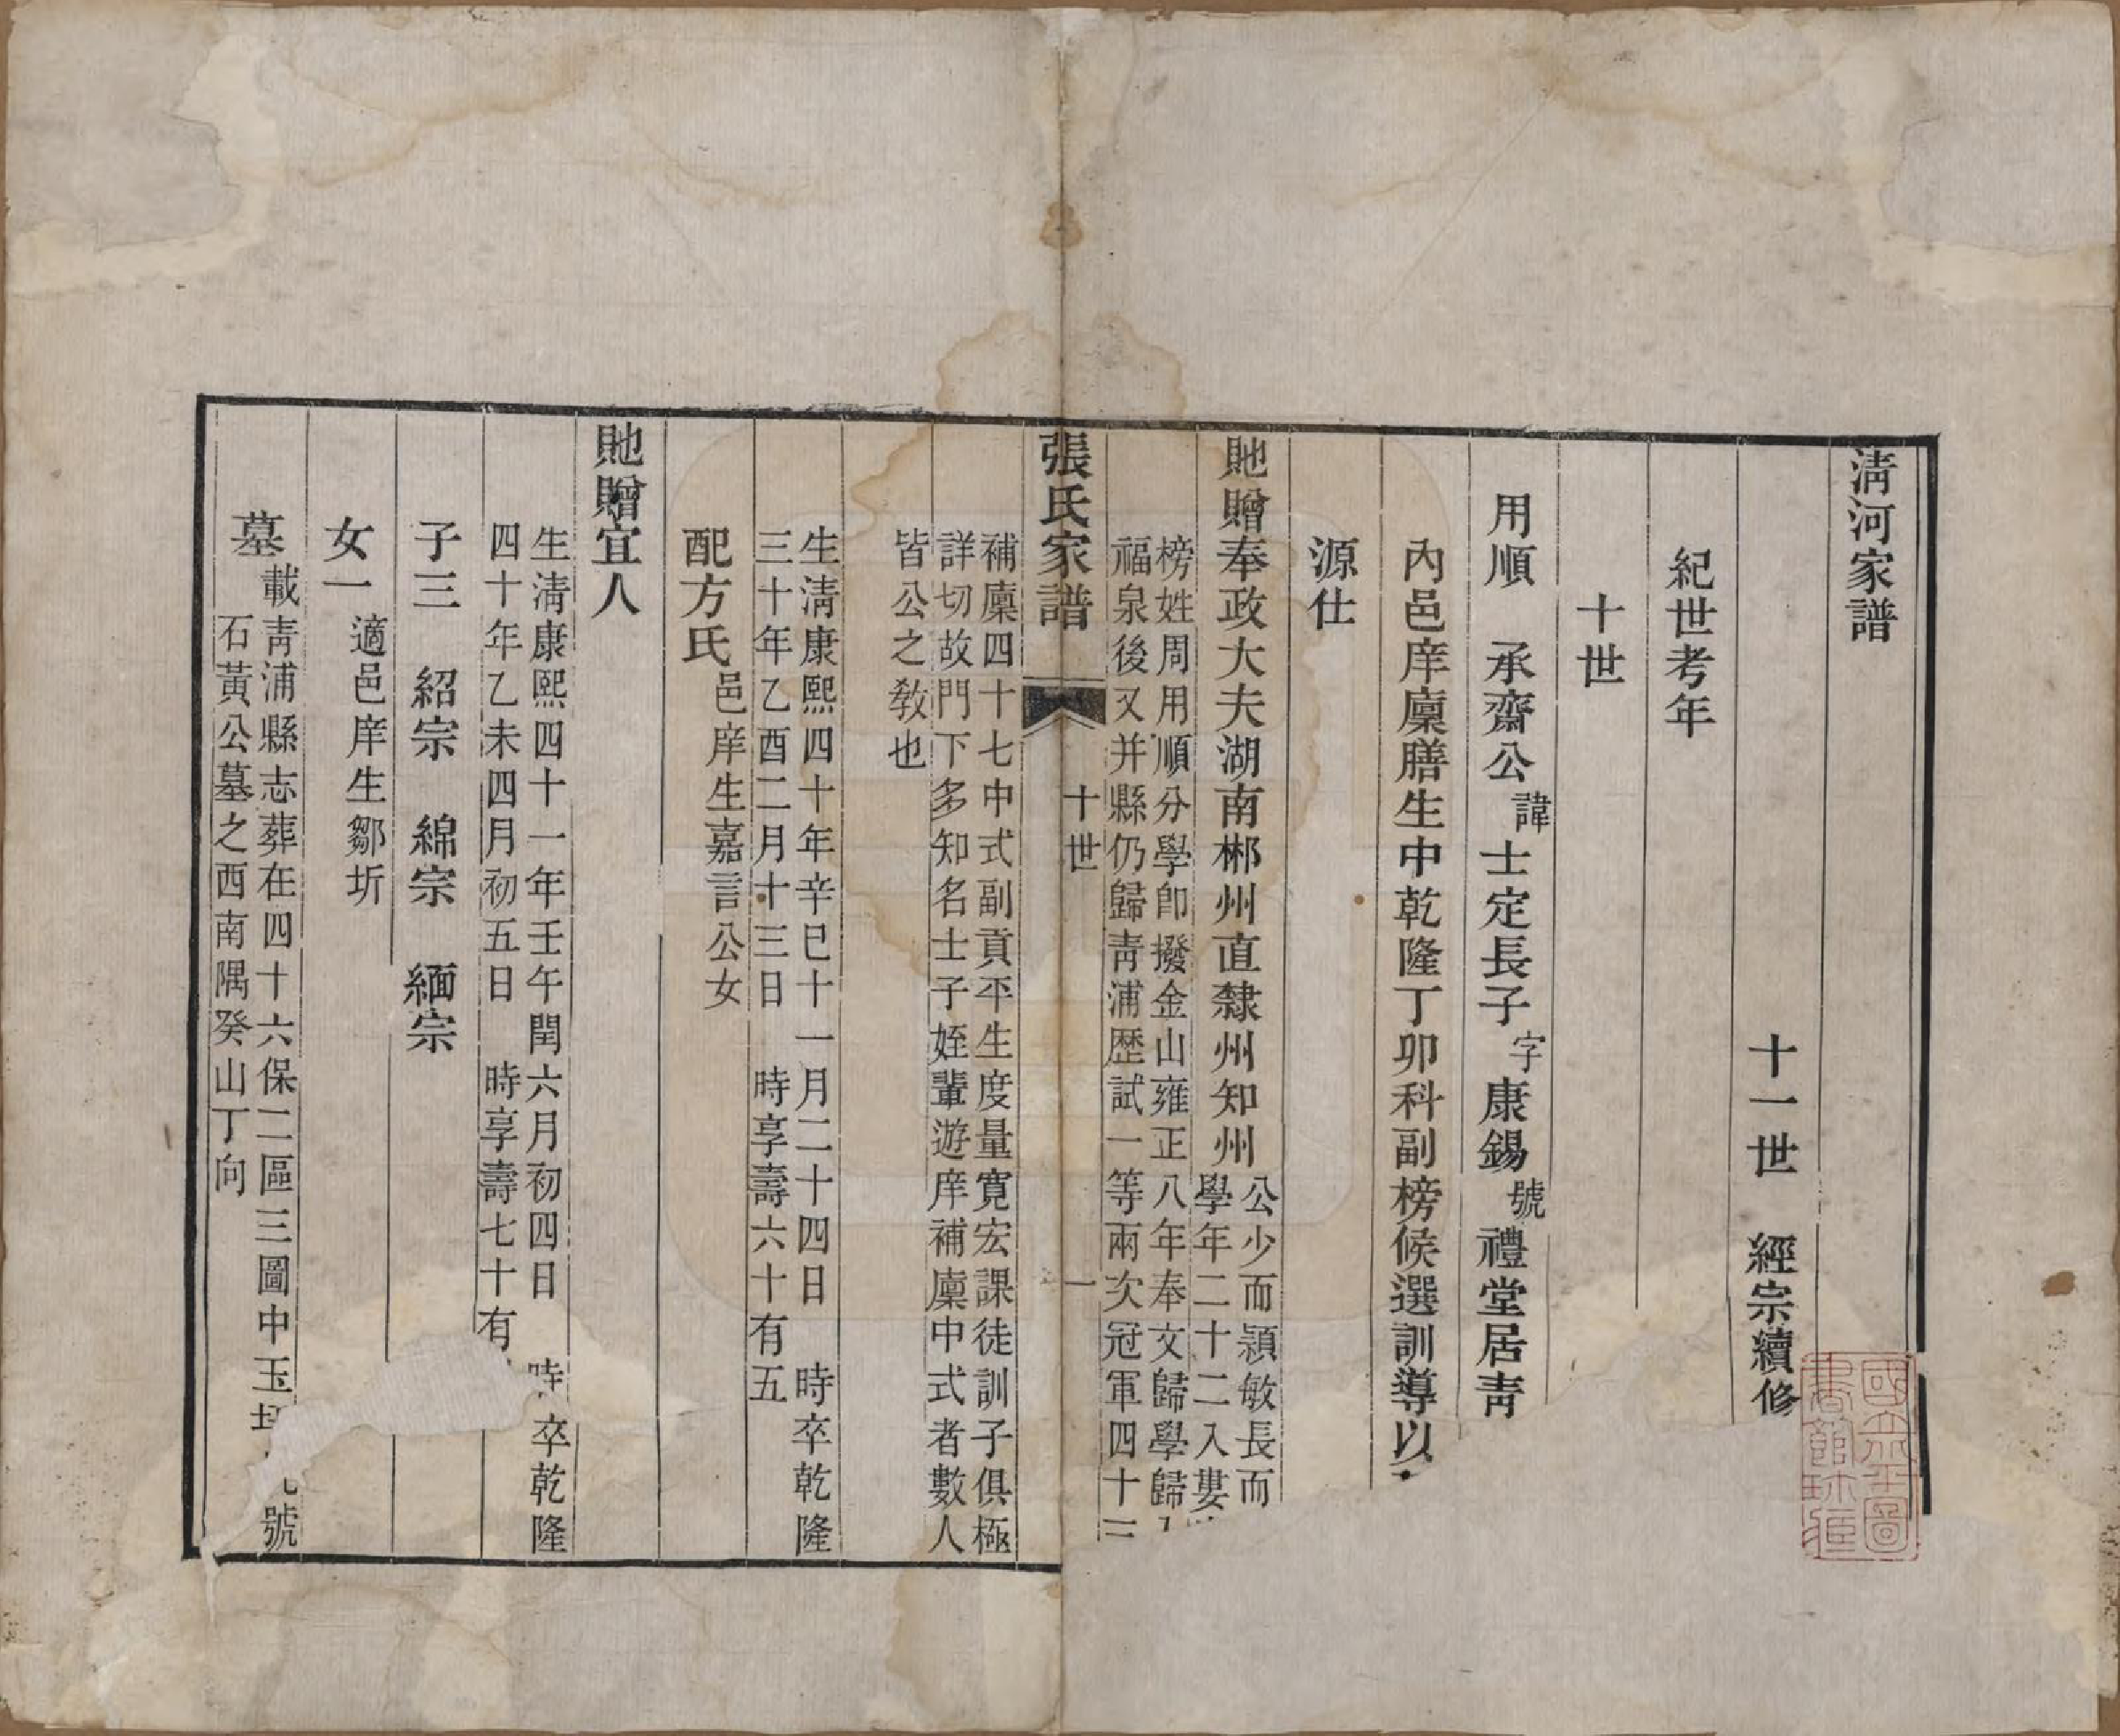 淸河家譜
十一世 經宗續修
紀世考年
十世
用順 承齋公諱士定長子字康錫號禮堂居靑
內邑庠廩膳生中乾隆丁卯科副榜候選訓導以
源仕
貤贈奉政大夫湖南郴州直隸州知州
公少而穎敏長而
學年二十二入婁
榜姓周用順分學卽撥金山雍正八年奉文歸學歸
福泉後又并縣仍歸靑浦歷試一等兩次冠軍四十三
張氏家譜 十世 一
補廩四十七中式副貢平生度量寬宏課徒訓子俱極
詳切故門下多知名士子姪輩遊庠補廩中式者數人
皆公之敎也
生淸康熙四十年辛巳十一月二十四日 時卒乾隆
三十年乙酉二月十三日 時享壽六十有五
配方氏邑庠生嘉言公女
貤贈宜人
生淸康熙四十一年壬午閏六月初四日 時卒乾隆
四十年乙未四月初五日 時享壽七十有
子三 紹宗 綿宗 緬宗
女一適邑庠生鄒圻
墓
載靑浦縣志葬在四十六保二區三圖中玉圩 號
石黃公墓之西南隅癸山丁向
國立北平圖
書館珍藏